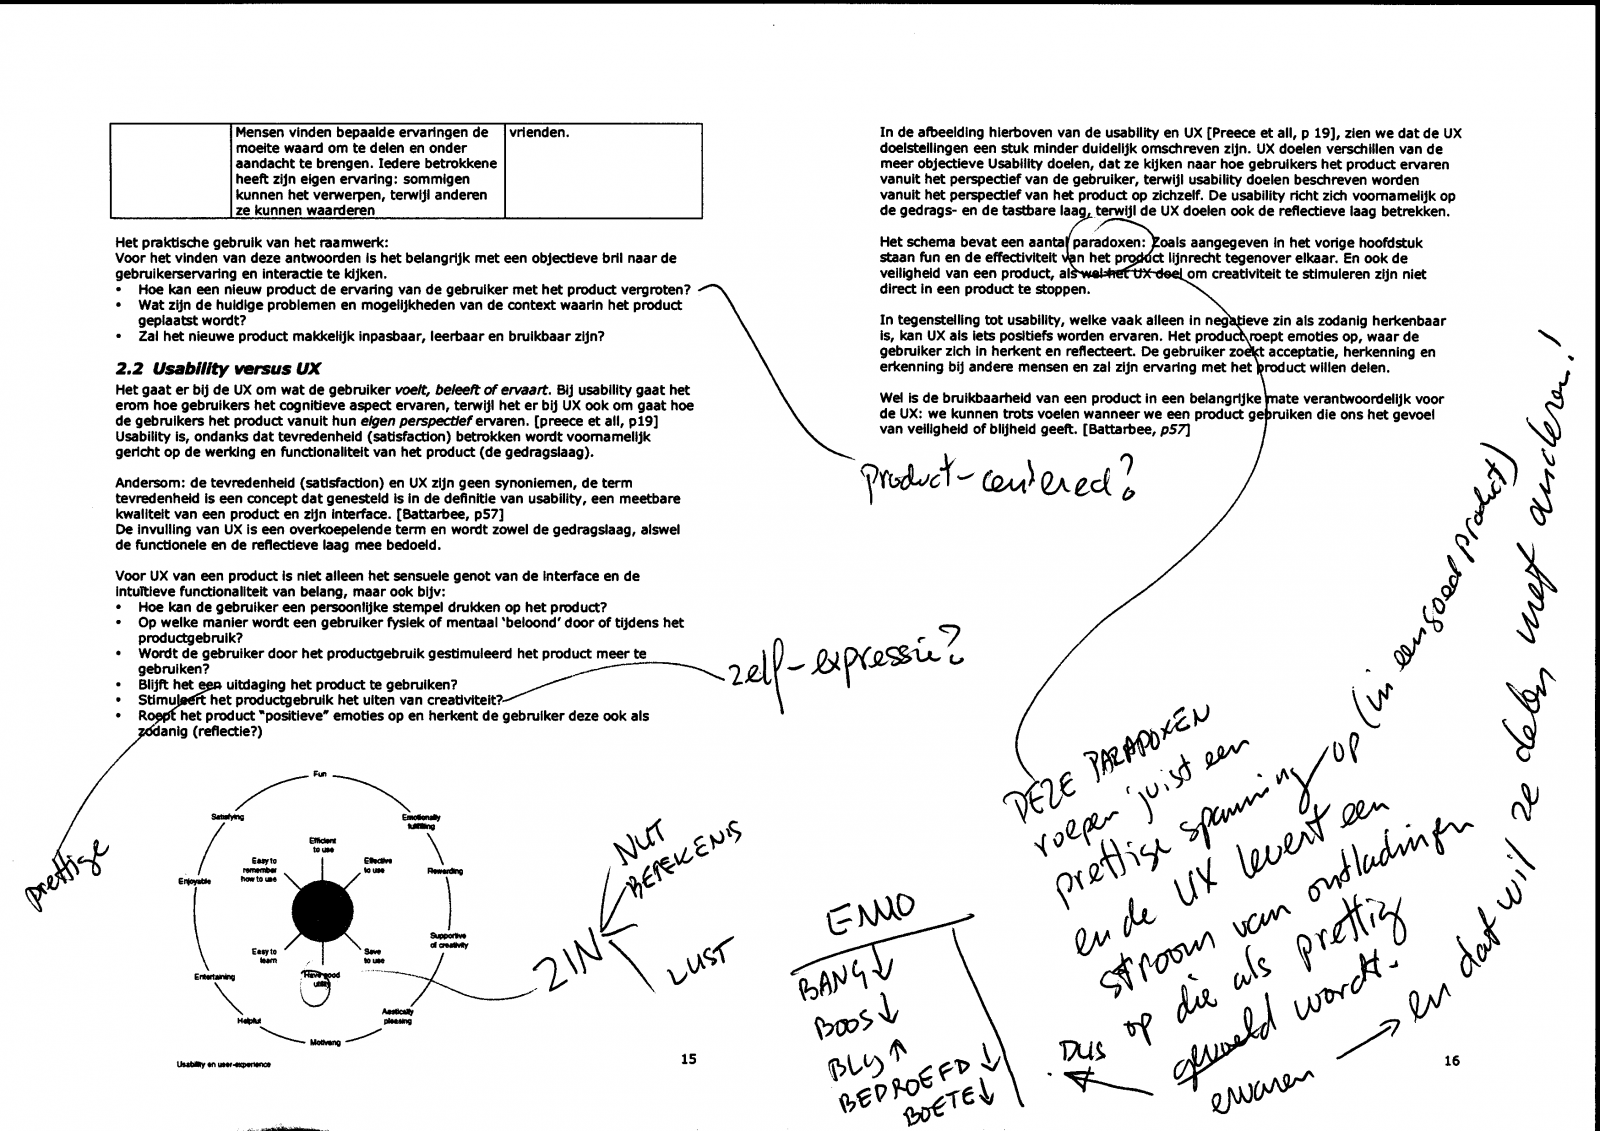 Mensen vinden bepaalde ervaringen de
moeite waard om te delen en onder
aandacht te brengen. Iedere betrokkene
heeft zijn eigen ervaring: sommigen
kunnen het verwerpen, terwijl anderen
ze kunnen waarderen
vrienden.
Het praktische gebruik van het raamwerk:
Voor het vinden van deze antwoorden is het belangrijk met een objectieve bril naar de
gebruikerservaring en interactie te kijken.
• Hoe kan een nieuw product de ervaring van de gebruiker met het product vergroten?
• Wat zijn de huidige problemen en mogelijkheden van de context waarin het product
geplaatst wordt?
• Zal het nieuwe product makkelijk inpasbaar, leerbaar en bruikbaar zijn?
2.2 Usability versus UX
Het gaat er bij de UX om wat de gebruiker voelt, beleeft of ervaart. Bij usability gaat het
erom hoe gebruikers het cognitieve aspect ervaren, terwijl het er bij UX ook om gaat hoe
de gebruikers het product vanuit hun eigen perspectief ervaren. [preece et all, p19]
Usability is, ondanks dat tevredenheid (satisfaction) betrokken wordt voornamelijk
gericht op de werking en functionaliteit van het product (de gedragslaag).
Andersom: de tevredenheid (satisfaction) en UX zijn geen synoniemen, de term
tevredenheid is een concept dat genesteld is in de definitie van usability, een meetbare
kwaliteit van een product en zijn interface. [Battarbee, p57]
De invulling van UX is een overkoepelende term en wordt zowel de gedragslaag, alswel
de functionele en de reflectieve laag mee bedoeld.
Voor UX van een product is niet alleen het sensuele genot van de interface en de
intuïtieve functionaliteit van belang, maar ook bijv:
• Hoe kan de gebruiker een persoonlijke stempel drukken op het product?
• Op welke manier wordt een gebruiker fysiek of mentaal 'beloond' door of tijdens het
productgebruik?
• Wordt de gebruiker door het productgebruik gestimuleerd het product meer te
gebruiken?
• Blijft het een uitdaging het product te gebruiken?
• Stimuleert het productgebruik het uiten van creativiteit?
• Roept het product "positieve" emoties op en herkent de gebruiker deze ook als
zodanig (reflectie?)
prettige
Fun
Satisfying
Emotionally
fulfilling
Efficient
to use
Easy to
remember
how to use
Effective
to use
Enjoyable
Rewarding
Supportive
of creativity
Easy to
learn
Save
to use
Entertaining
Have good
utility
Helpful
Aestically
pleasing
Motiveng
Usability en user-experience
15
ZIN
NUT
BETEKENIS
LUST
In de afbeelding hierboven van de usability en UX [Preece et all, p 19], zien we dat de UX
doelstellingen een stuk minder duidelijk omschreven zijn. UX doelen verschillen van de
meer objectieve Usability doelen, dat ze kijken naar hoe gebruikers het product ervaren
vanuit het perspectief van de gebruiker, terwijl usability doelen beschreven worden
vanuit het perspectief van het product op zichzelf. De usability richt zich voornamelijk op
de gedrags- en de tastbare laag, terwijl de UX doelen ook de reflectieve laag betrekken.
Het schema bevat een aantal paradoxen: Zoals aangegeven in het vorige hoofdstuk
staan fun en de effectiviteit van het product lijnrecht tegenover elkaar. En ook de
veiligheid van een product, als wel het UX doel om creativiteit te stimuleren zijn niet
direct in een product te stoppen.
In tegenstelling tot usability, welke vaak alleen in negatieve zin als zodanig herkenbaar
is, kan UX als iets positiefs worden ervaren. Het product roept emoties op, waar de
gebruiker zich in herkent en reflecteert. De gebruiker zoekt acceptatie, herkenning en
erkenning bij andere mensen en zal zijn ervaring met het product willen delen.
Wel is de bruikbaarheid van een product in een belangrijke mate verantwoordelijk voor
de UX: we kunnen trots voelen wanneer we een product gebruiken die ons het gevoel
van veiligheid of blijheid geeft. [Battarbee, p57]
product-centered?
zelf-expressie?
DEZE PARADOXEN
roepen juist een
prettige spanning op (in een goed product)
en de UX levert een
stroom van ontladingen
op die als prettig
gevoeld wordt.
ervaren → en dat wil ze delen met anderen!
DUS
EMO
BANG ↓
BOOS ↓
BLIJ ↑
BEDROEFD ↓
BOETE ↓
16